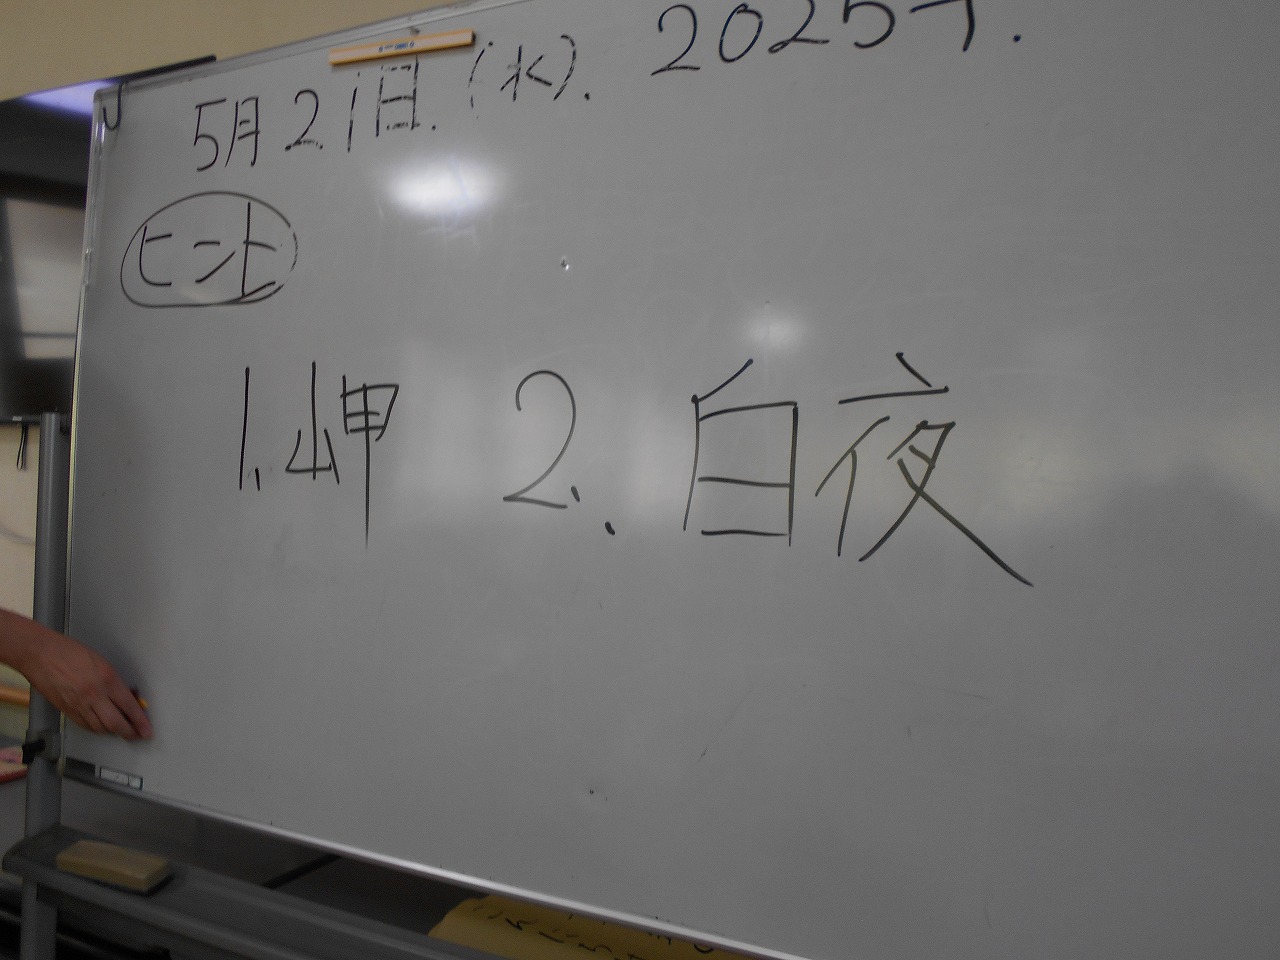 5月21日.(水). 2025年.
ヒント
1. 岬 2. 白夜